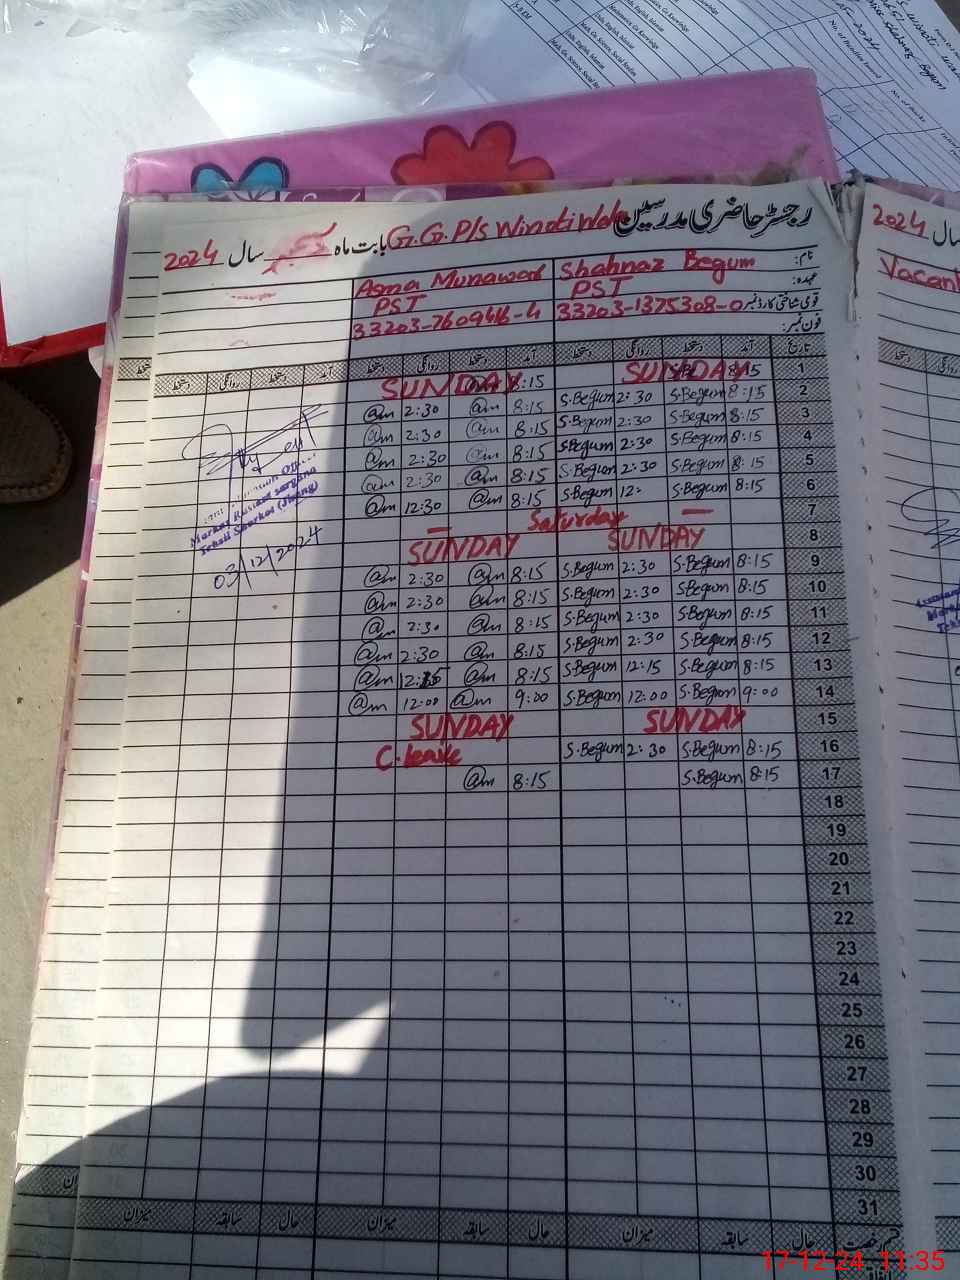 رجسٹر حاضری مدرسین G.G.P/S Winoti Wala بابت ماہ دسمبر سال 2024
نام: Shahnaz Begum Asma Munawar
عہدہ: PST PST
قومی شناختی کارڈ نمبر 33203-1375308-0 33203-7609416-4
فون نمبر:
تاریخ آمد دستخط روانگی دستخط آمد دستخط روانگی دستخط آمد دستخط روانگی دستخط
1 8:15 SUNDAY 8:15 SUNDAY
2 8:15 S.Begum 2:30 S.Begum 8:15 @m 2:30 @m
3 8:15 S.Begum 2:30 S.Begum 8:15 @m 2:30 @m
4 8:15 S.Begum 2:30 S.Begum 8:15 @m 2:30 @m
5 8:15 S.Begum 2:30 S.Begum 8:15 @m 2:30 @m
6 8:15 S.Begum 12: S.Begum 8:15 @m 12:30 @m
7 — Saturday —
8 SUNDAY SUNDAY
9 8:15 S.Begum 2:30 S.Begum 8:15 @m 2:30 @m
10 8:15 S.Begum 2:30 S.Begum 8:15 @m 2:30 @m
11 8:15 S.Begum 2:30 S.Begum 8:15 @m 2:30 @m
12 8:15 S.Begum 2:30 S.Begum 8:15 @m 2:30 @m
13 8:15 S.Begum 12:15 S.Begum 8:15 @m 12:15 @m
14 9:00 S.Begum 12:00 S.Begum 9:00 @m 12:00 @m
15 SUNDAY SUNDAY
16 8:15 S.Begum 2:30 S.Begum C.leave
17 8:15 S.Begum 8:15 @m
18
19
20
21
22
23
24
25
26
27
28
29
30
31
حال سابقہ میزان حال سابقہ میزان حال سابقہ میزان
Tehsil Shorkot (Jhang)
03/12/2024
2024 سال
Vacant
17-12-24 11:35